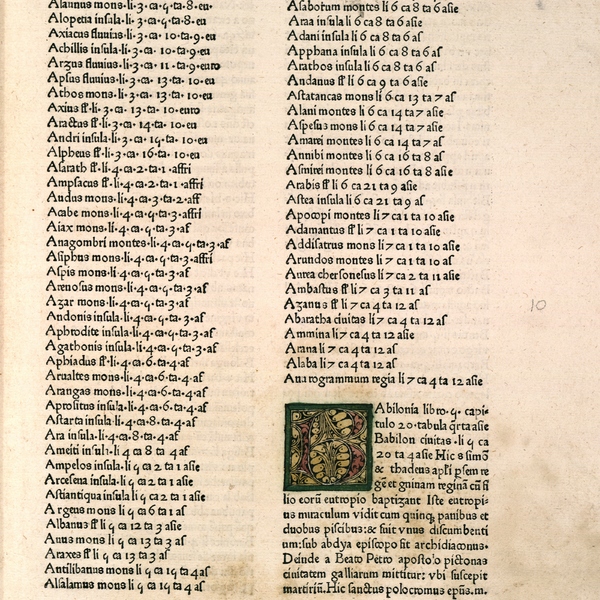 Alaunus mons·li·3·ca·q·ta·8·eu·
Alopena insula·li·3·ca·q·ta·8·eu
Axiacus fluuius·li·3·ca·10·ta·9·eu
Achillis insula·li·3·ca·10·ta·9·eu
Arzus fluuius·li·3·ca·11·ta·9·euro
Apsus fluuius·li·3·ca·13·ta·10·eu
Athos mons·li·3·ca·13·ta·10·eu
Axius fſ·li·3·ca·13·ta·10·euro
Aractus fſ·li·3·ca·14·ta·10·eu
Andri insula·li·3·ca·1q·ta·10·eu
Alpheus fſ·li·3·ca·16·ta·10·eu
Asarath fſ·li·4·ca·2·ta·1·affri
Ampsacus fſ·li·4·ca·2·ta·1·affri
Audus mons·li·4·ca·3·ta·2·aff
Acabe mons·li·4·ca·q·ta·3·affri
Aiax mons·li·4·ca·q·ta·3·af
Anagombri montes·li·4·ca·q·ta·3·af
Asiphus mons·li·4·ca·q·ta·3·affri
Aspis mons·li·4·ca·q·ta·3·af
Arenosus mons·li·4·ca·q·ta·3·af
Azar mons·li·4·ca·q·ta·3·af
Andonis insula·li·4·ca·q·ta·3·af
Aphrodite insula·li·4·ca·q·ta·3·af
Agathonis insula·li·4·ca·q·ta·3·af
Aphiadus fſ·li·4·ca·6·ta·4·af
Arualtes mons·li·4·ca·6·ta·4·af
Arangas mons·li·4·ca·6·ta·4·af
Aprositus insula·li·4·ca·6·ta·4·af
Astarta insula·li·4·ca·8·ta·4·af
Ara insula·li·4·ca·8·ta·4·af
Amciti insula·li 4 ca 8 ta 4 af
Ampelos insula·li q ca 2 ta 1 asie
Arcesena insula·li q ca 2 ta 1 asie
Astiantiqua insula li q ca 2 ta 1 asie
Argeus mons li q ca 6 ta 1 as
Albanus fſ li q ca 12 ta 3 asie
Anus mons li q ca 13 ta 3 as
Araxes fſ li q ca 13 ta 3 as
Antilibanus mons li q ca 1q ta 4 as
Alsalamus mons li q ca 1q ta 4 as
Asabotum montes li 6 ca 8 ta 6 asie
Araa insula li 6 ca 8 ta 6 asie
Adani insula li 6 ca 8 ta 6 as
Apphana insula li 6 ca 8 ta 6 as
Arathos insula li 6 ca 8 ta 6 as
Andanus fſ li 6 ca 9 ta 6 asie
Astatancas mons li 6 ca 13 ta 7 as
Alani montes li 6 ca 14 ta 7 asie
Aspesus mons li 6 ca 14 ta 7 asie
Amarei montes li 6 ca 14 ta 7 as
Annibi montes li 6 ca 16 ta 8 as
Asmirei montes li 6 ca 16 ta 8 asie
Arabis fſ li 6 ca 21 ta 9 asie
Astea insula li 6 ca 21 ta 9 as
Apocopi montes li 7 ca 1 ta 10 asie
Adamantus fſ li 7 ca 1 ta 10 asie
Addisatrus mons li 7 ca 1 ta 10 asie
Arundos montes li 7 ca 1 ta 10 as
Aurea chersonesus li 7 ca 2 ta 11 asie
Ambastus fſ li 7 ca 3 ta 11 as
Azanus fſ li 7 ca 4 ta 12 as
Abaratha ciuitas li 7 ca 4 ta 12 as
Ammina li 7 ca 4 ta 12 asie
Arana li 7 ca 4 ta 12 as
Alaba li 7 ca 4 ta 12 as
Anurogrammum regia li 7 ca 4 ta 12 asie
BAbilonia libro·q·capi-
tulo 20·tabula q̃rta asie
Babilon ciuitas·li q ca
20 ta 4 asie Hic s simõ
& thadeus apľi psem re
gẽ et gninam reginã cũ fi
lio eorũ eutropio baptizant Iste eutropi-
us miraculum vidit cum quinq; panibus et
duobus piscibus:& fuit vnus discumbenti
um:sub abdya episcopo sit archidiaconus·
Deinde a Beato Petro apostolo pictonas
ciuitatem galliarum mittitur: vbi suscepit
martiriũ. Hic sanctus polocromus ep̃us.m.
10